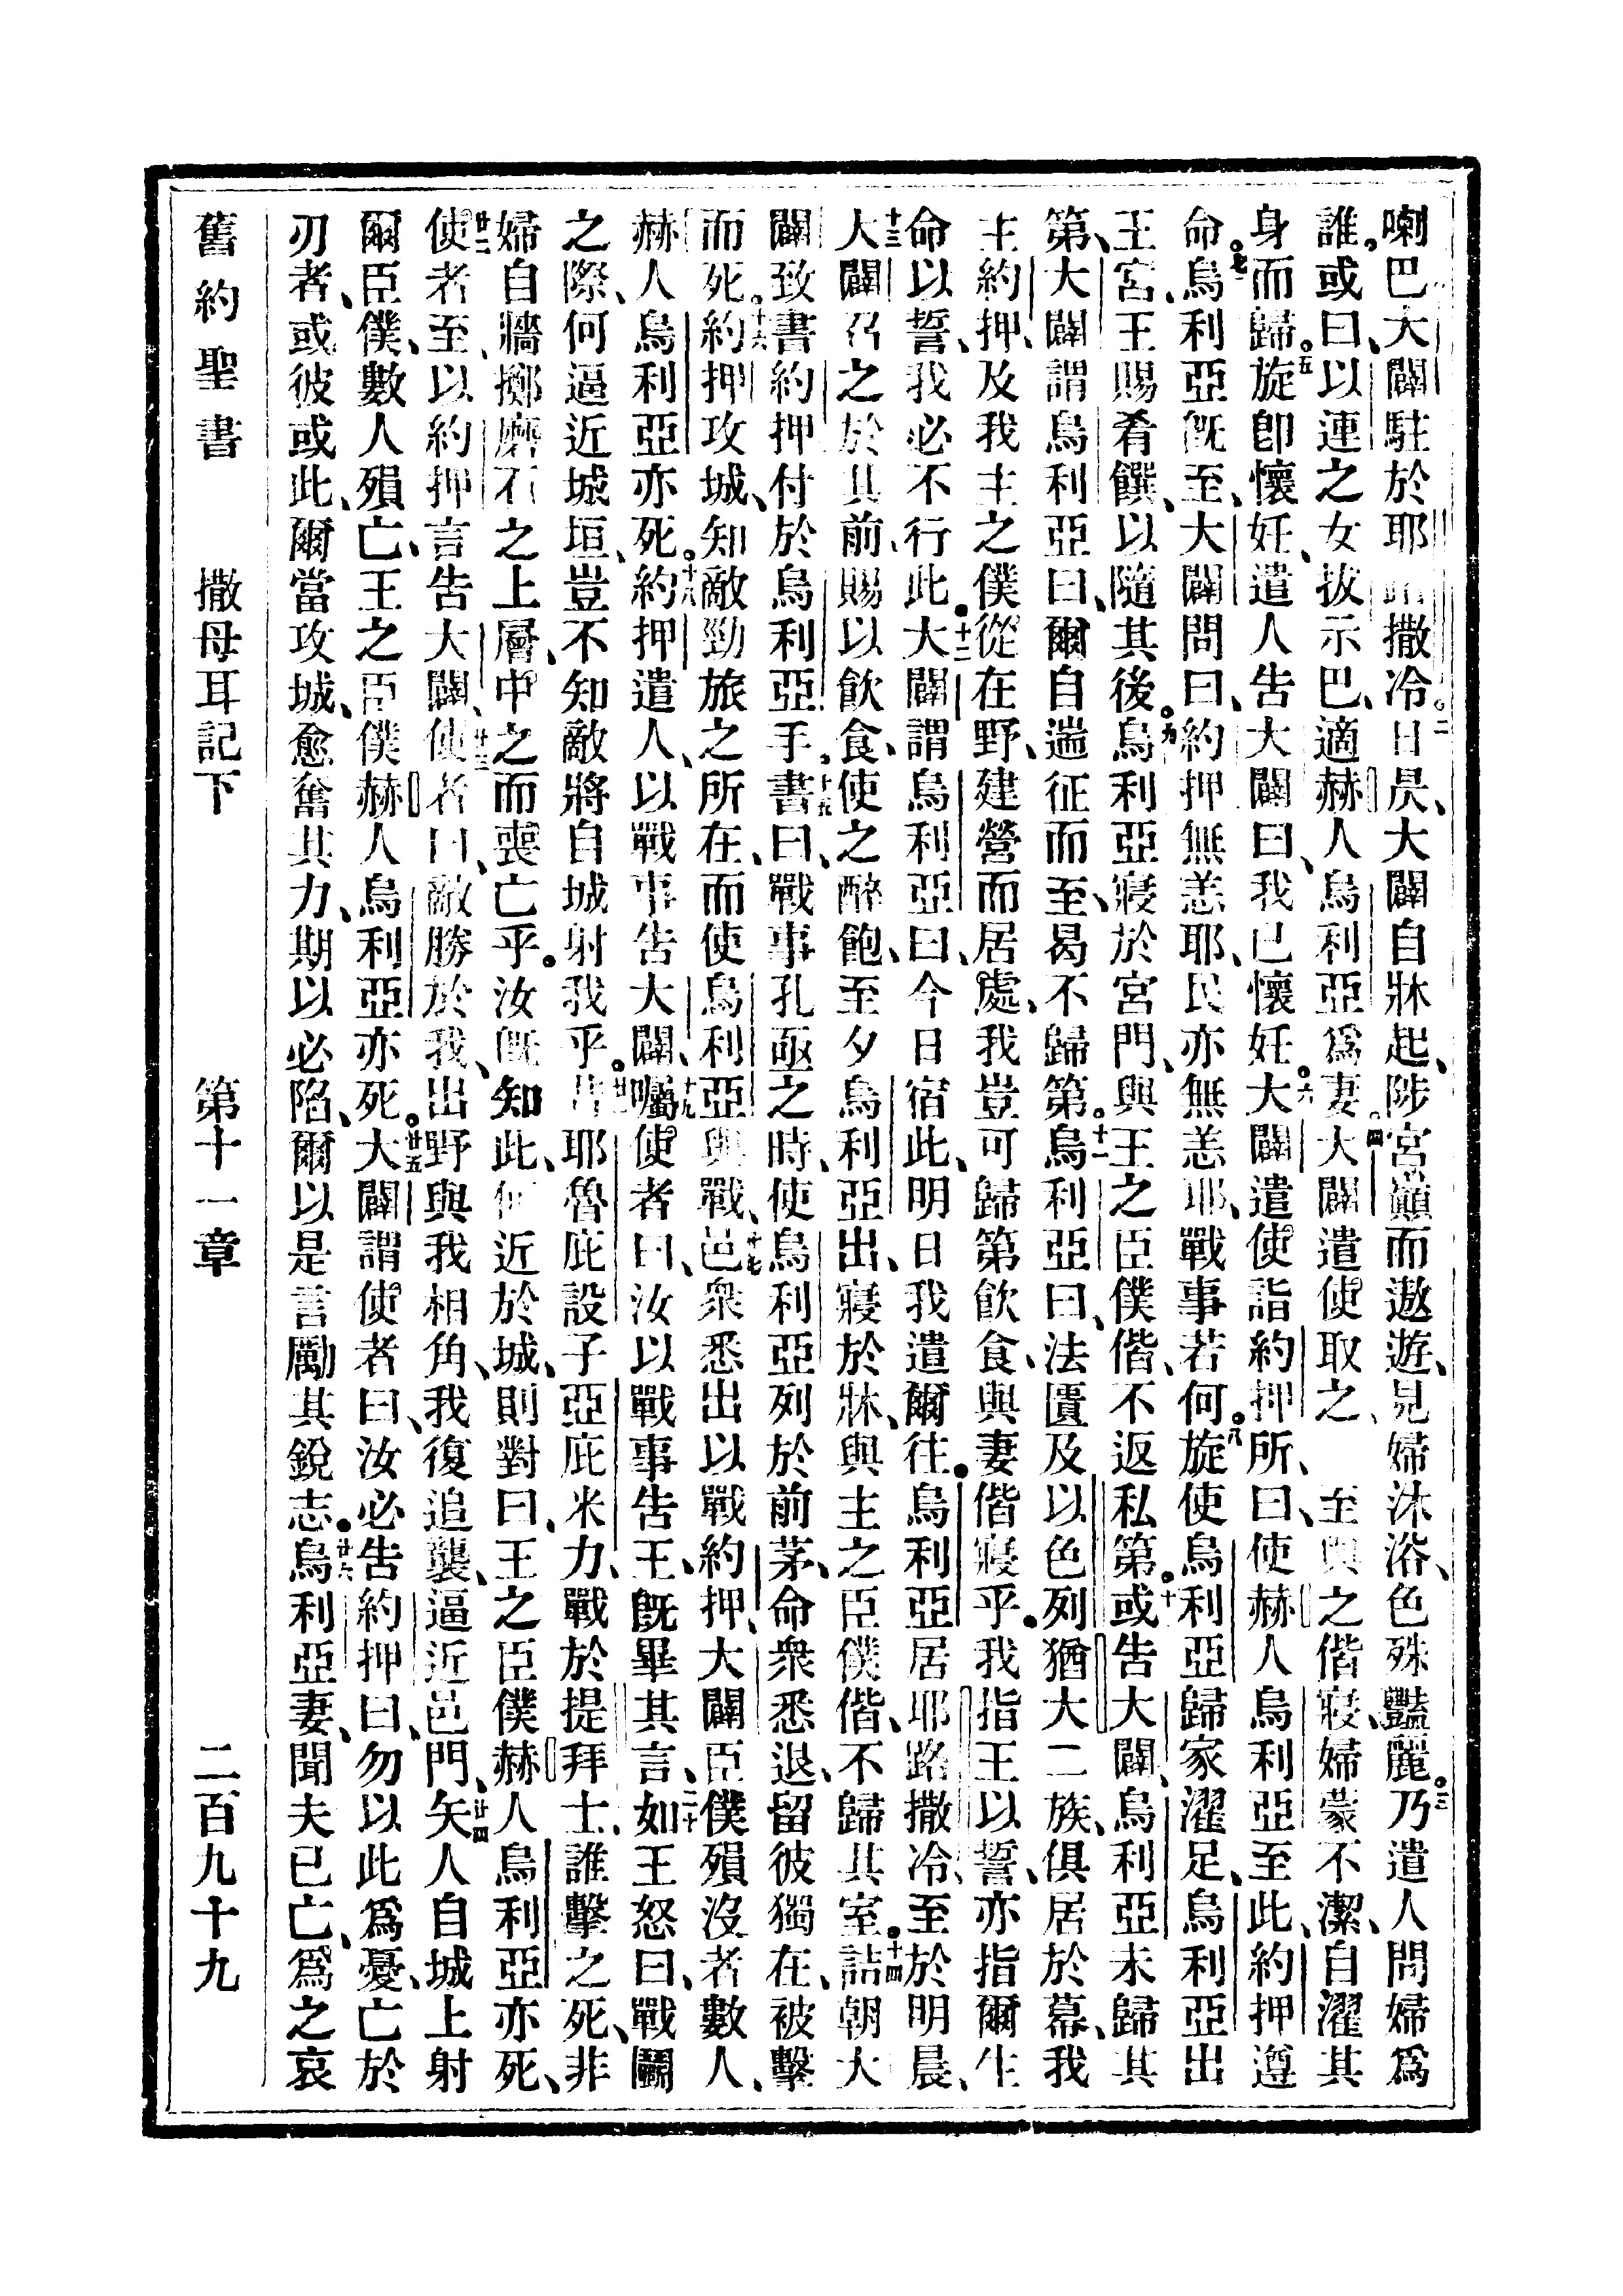 喇巴大闢駐於耶路撒冷。二日昃、大闢自牀起、陟宮巔而遨遊、見婦沐浴、色殊豔麗。三乃遣人問婦爲
誰。或曰、以連之女拔示巴、適赫人烏利亞爲妻。四大闢遣使取之、至與之偕寢、婦蒙不潔、自濯其
身而歸。五旋卽懷妊、遣人告大闢曰、我已懷妊。六大闢遣使詣約押所、曰、使赫人烏利亞至此、約押遵
命。七烏利亞旣至、大闢問曰、約押無恙耶、民亦無恙耶、戰事若何。八旋使烏利亞歸家濯足、烏利亞出
王宮、王賜肴饌、以隨其後。九烏利亞寢於宮門、與王之臣僕偕、不返私第。十或告大闢、烏利亞未歸其
第、大闢謂烏利亞曰、爾自遄征而至、曷不歸第。十一烏利亞曰、法匱及以色列猶大二族、俱居於幕、我
主約押、及我主之僕從在野、建營而居處、我豈可歸第飲食、與妻偕寢乎。我指王以誓、亦指爾生
命以誓、我必不行此。十二大闢謂烏利亞曰、今日宿此、明日我遣爾往。烏利亞居耶路撒冷、至於明晨、
十三大闢召之於其前、賜以飲食、使之醉飽、至夕烏利亞出、寢於牀、與主之臣僕偕、不歸其室。十四詰朝大
闢致書約押、付於烏利亞手。十五書曰、戰事孔亟之時、使烏利亞列於前茅、命衆悉退、留彼獨在、被擊
而死。十六約押攻城、知敵勁旅之所在、而使烏利亞與戰、十七邑衆悉出以戰約押、大闢臣僕殞沒者數人、
赫人烏利亞亦死。十八約押遣人、以戰事告大闢、十九囑使者曰、汝以戰事告王、旣畢其言、二十如王怒曰、戰鬭
之際、何逼近城垣、豈不知敵將自城射我乎。廿一昔耶魯庇設子亞庇米力、戰於提拜士、誰擊之死、非
婦自牆擲磨石之上層、中之而喪亡乎。汝旣知此、何近於城、則對曰、王之臣僕赫人烏利亞亦死、
廿二使者至、以約押言告大闢、廿三使者曰、敵勝於我、出野與我相角、我復追襲、逼近邑門、廿四矢人自城上射
爾臣僕、數人殞亡、王之臣僕赫人烏利亞亦死。廿五大闢謂使者曰、汝必告約押曰、勿以此爲憂、亡於
刃者、或彼或此、爾當攻城、愈奮其力、期以必陷、爾以是言勵其銳志。廿六烏利亞妻、聞夫已亡、爲之哀
舊約聖書　撒母耳記下　第十一章　二百九十九